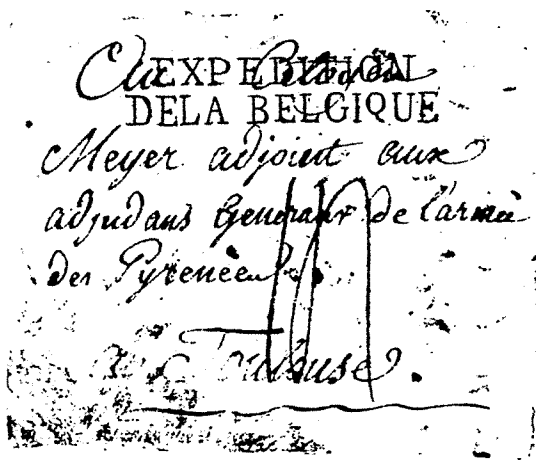 Au Citoyen
EXPEDITION
DELA BELGIQUE
Meyer adjoint aux
adjudans Generaux de l'armée
des Pyrenées
a Toulouse.